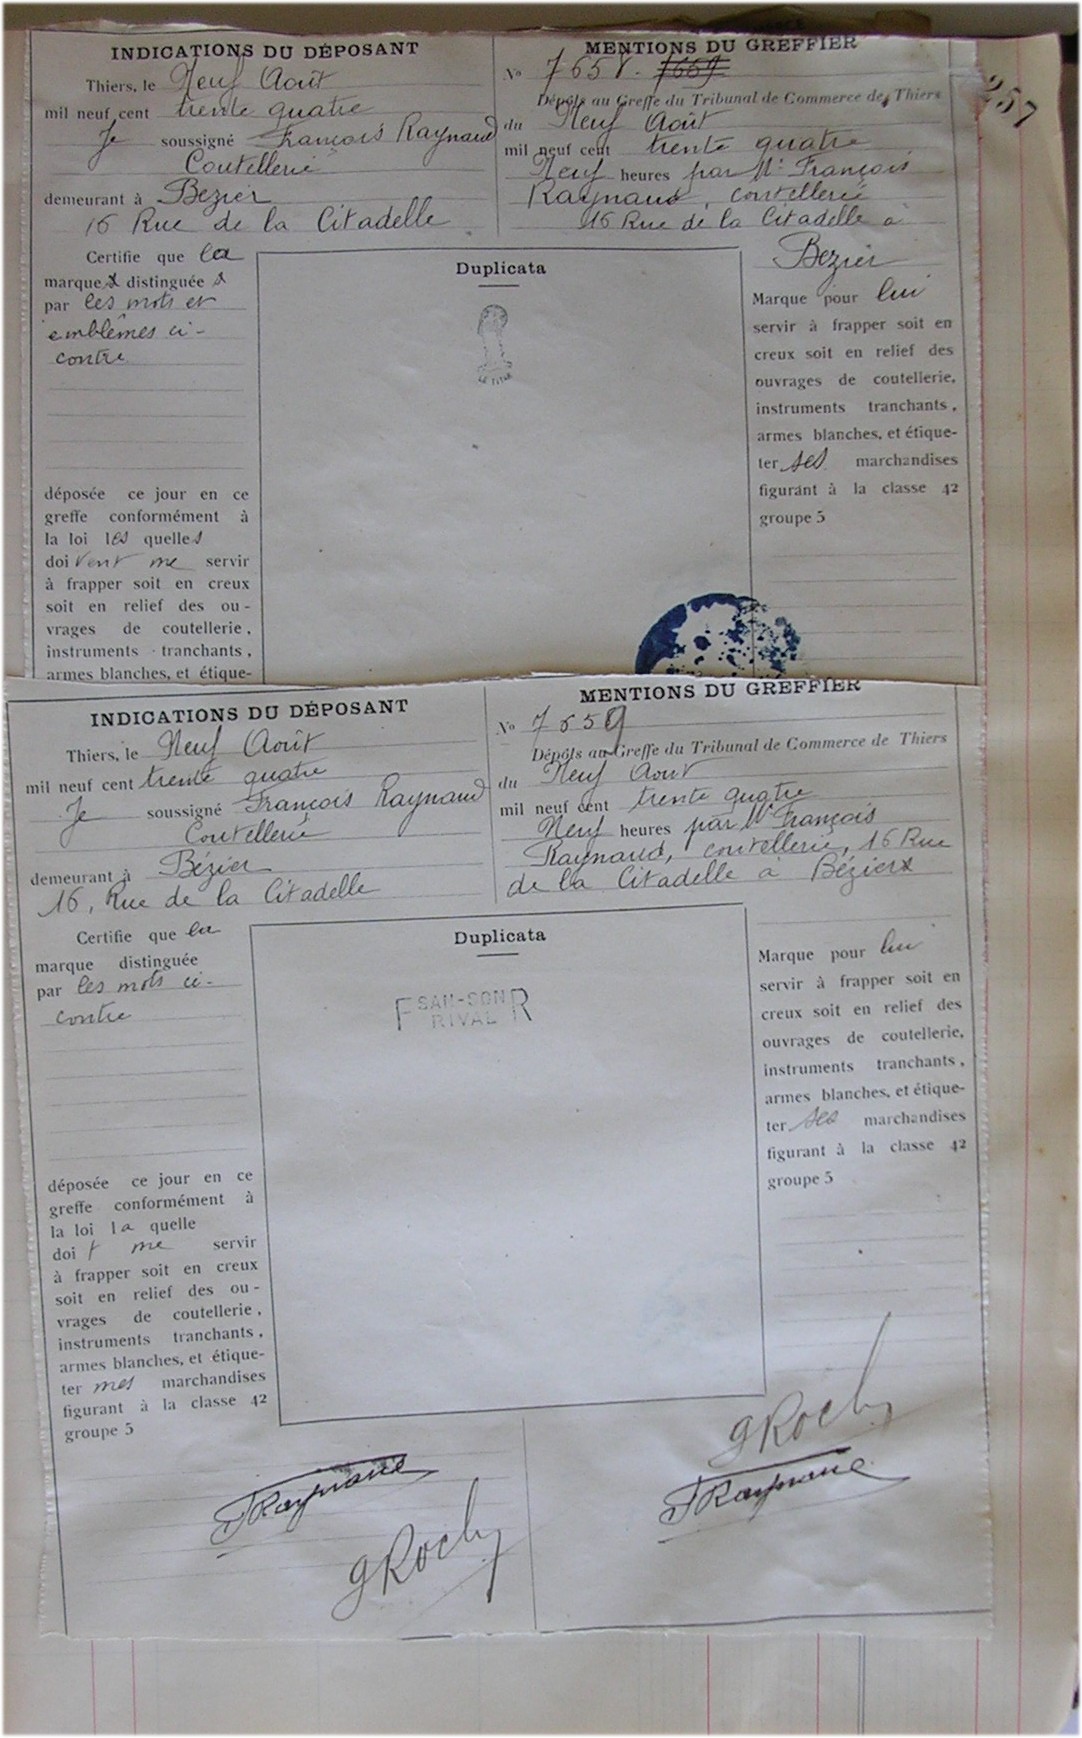 INDICATIONS DU DÉPOSANT
Thiers, le Neuf Août
mil neuf cent trente quatre
Je soussigné François Raynaud
Coutellerie
demeurant à Bezier
16 Rue de la Citadelle
Certifie que la
marque distinguée
par les mots et
emblêmes ci-
contre
déposée ce jour en ce
greffe conformément à
la loi les quelles
doivent me servir
à frapper soit en creux
soit en relief des ou-
vrages de coutellerie,
instruments tranchants,
armes blanches, et étique-
Duplicata
LE TITAN
MENTIONS DU GREFFIER
No 7658. 7659
Dépôts au Greffe du Tribunal de Commerce de Thiers
du Neuf Août
mil neuf cent trente quatre
Neuf heures par Mr François
Raynaud, coutellerie
16 Rue de la Citadelle à
Bezier
Marque pour lui
servir à frapper soit en
creux soit en relief des
ouvrages de coutellerie,
instruments tranchants,
armes blanches, et étique-
ter ses marchandises
figurant à la classe 42
groupe 5
257
INDICATIONS DU DÉPOSANT
Thiers, le Neuf Août
mil neuf cent trente quatre
Je soussigné François Raynaud
Coutellerie
demeurant à Bézier
16, Rue de la Citadelle
Certifie que la
marque distinguée
par les mots ci-
contre
déposée ce jour en ce
greffe conformément à
la loi la quelle
doit me servir
à frapper soit en creux
soit en relief des ou-
vrages de coutellerie,
instruments tranchants,
armes blanches, et étique-
ter mes marchandises
figurant à la classe 42
groupe 5
Duplicata
F SAN-SON R
RIVAL
MENTIONS DU GREFFIER
No 7659
Dépôts au Greffe du Tribunal de Commerce de Thiers
du Neuf Aout
mil neuf cent trente quatre
Neuf heures par Mr François
Raynaud, coutellerie, 16 Rue
de la Citadelle à Bézier
Marque pour lui
servir à frapper soit en
creux soit en relief des
ouvrages de coutellerie,
instruments tranchants,
armes blanches, et étique-
ter ses marchandises
figurant à la classe 42
groupe 5
FRaynaud
GRoche
GRoche
FRaynaud